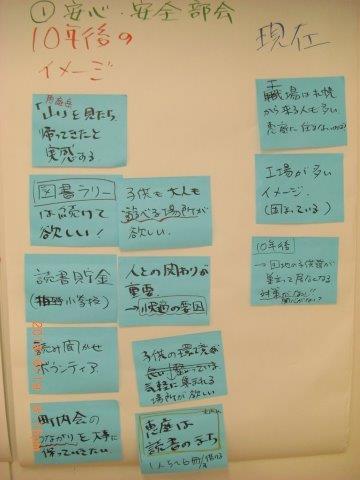 ① 安心・安全部会
10年後の
イメージ
現在
恵庭岳
「山」を見たら
帰ってきたと
実感する
図書ラリー
は続けて
欲しい!
読書貯金
(柏野小学校)
読み聞かせ
ボランティア
町内会の
つながりを大事に
保っていきたい。
子供も大人も
遊べる場所が
欲しい。
人との関わりが
重要。
子供の環境が
整っている
気軽に集まれる
場所が欲しい
恵庭は
読書のまち
職場は札幌
から来る人も多い
恵庭に住まない
工場が多い
イメージ
(固まっている)
10年後
→団地の子供達が
巣立って居なくなる